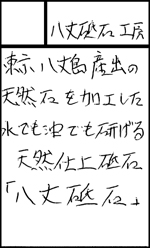 八丈砥石工房
東京八丈島産出の
天然石を加工した
水でも油でも研げる
天然仕上砥石
「八丈砥石」